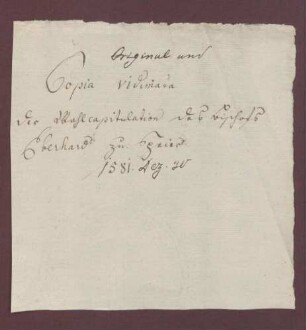 Original und
Copia vidimata
der Wahlcapitulation des Bischofs
Eberhard zu Speier
1581. Dez. 20